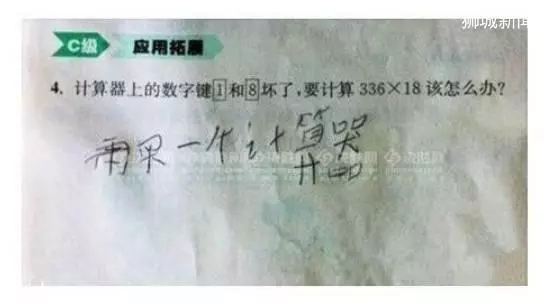 狮城新闻
C级 应用拓展
4. 计算器上的数字键1和8坏了,要计算 336×18 该怎么办?
再买一个计算器